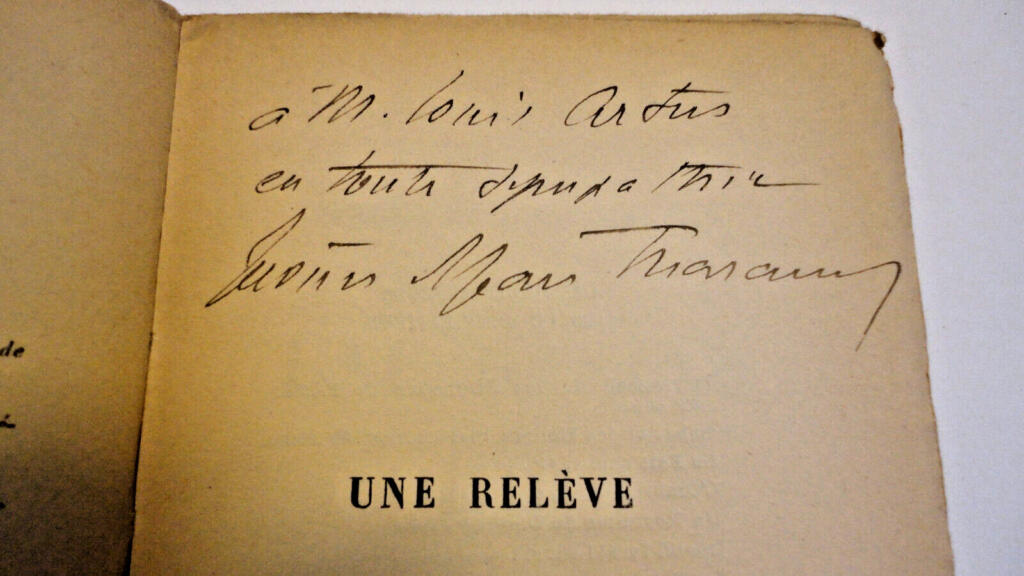 à M. Louis Artus
en toute sympathie
Jérôme & Jean Tharaud
de
UNE RELÈVE